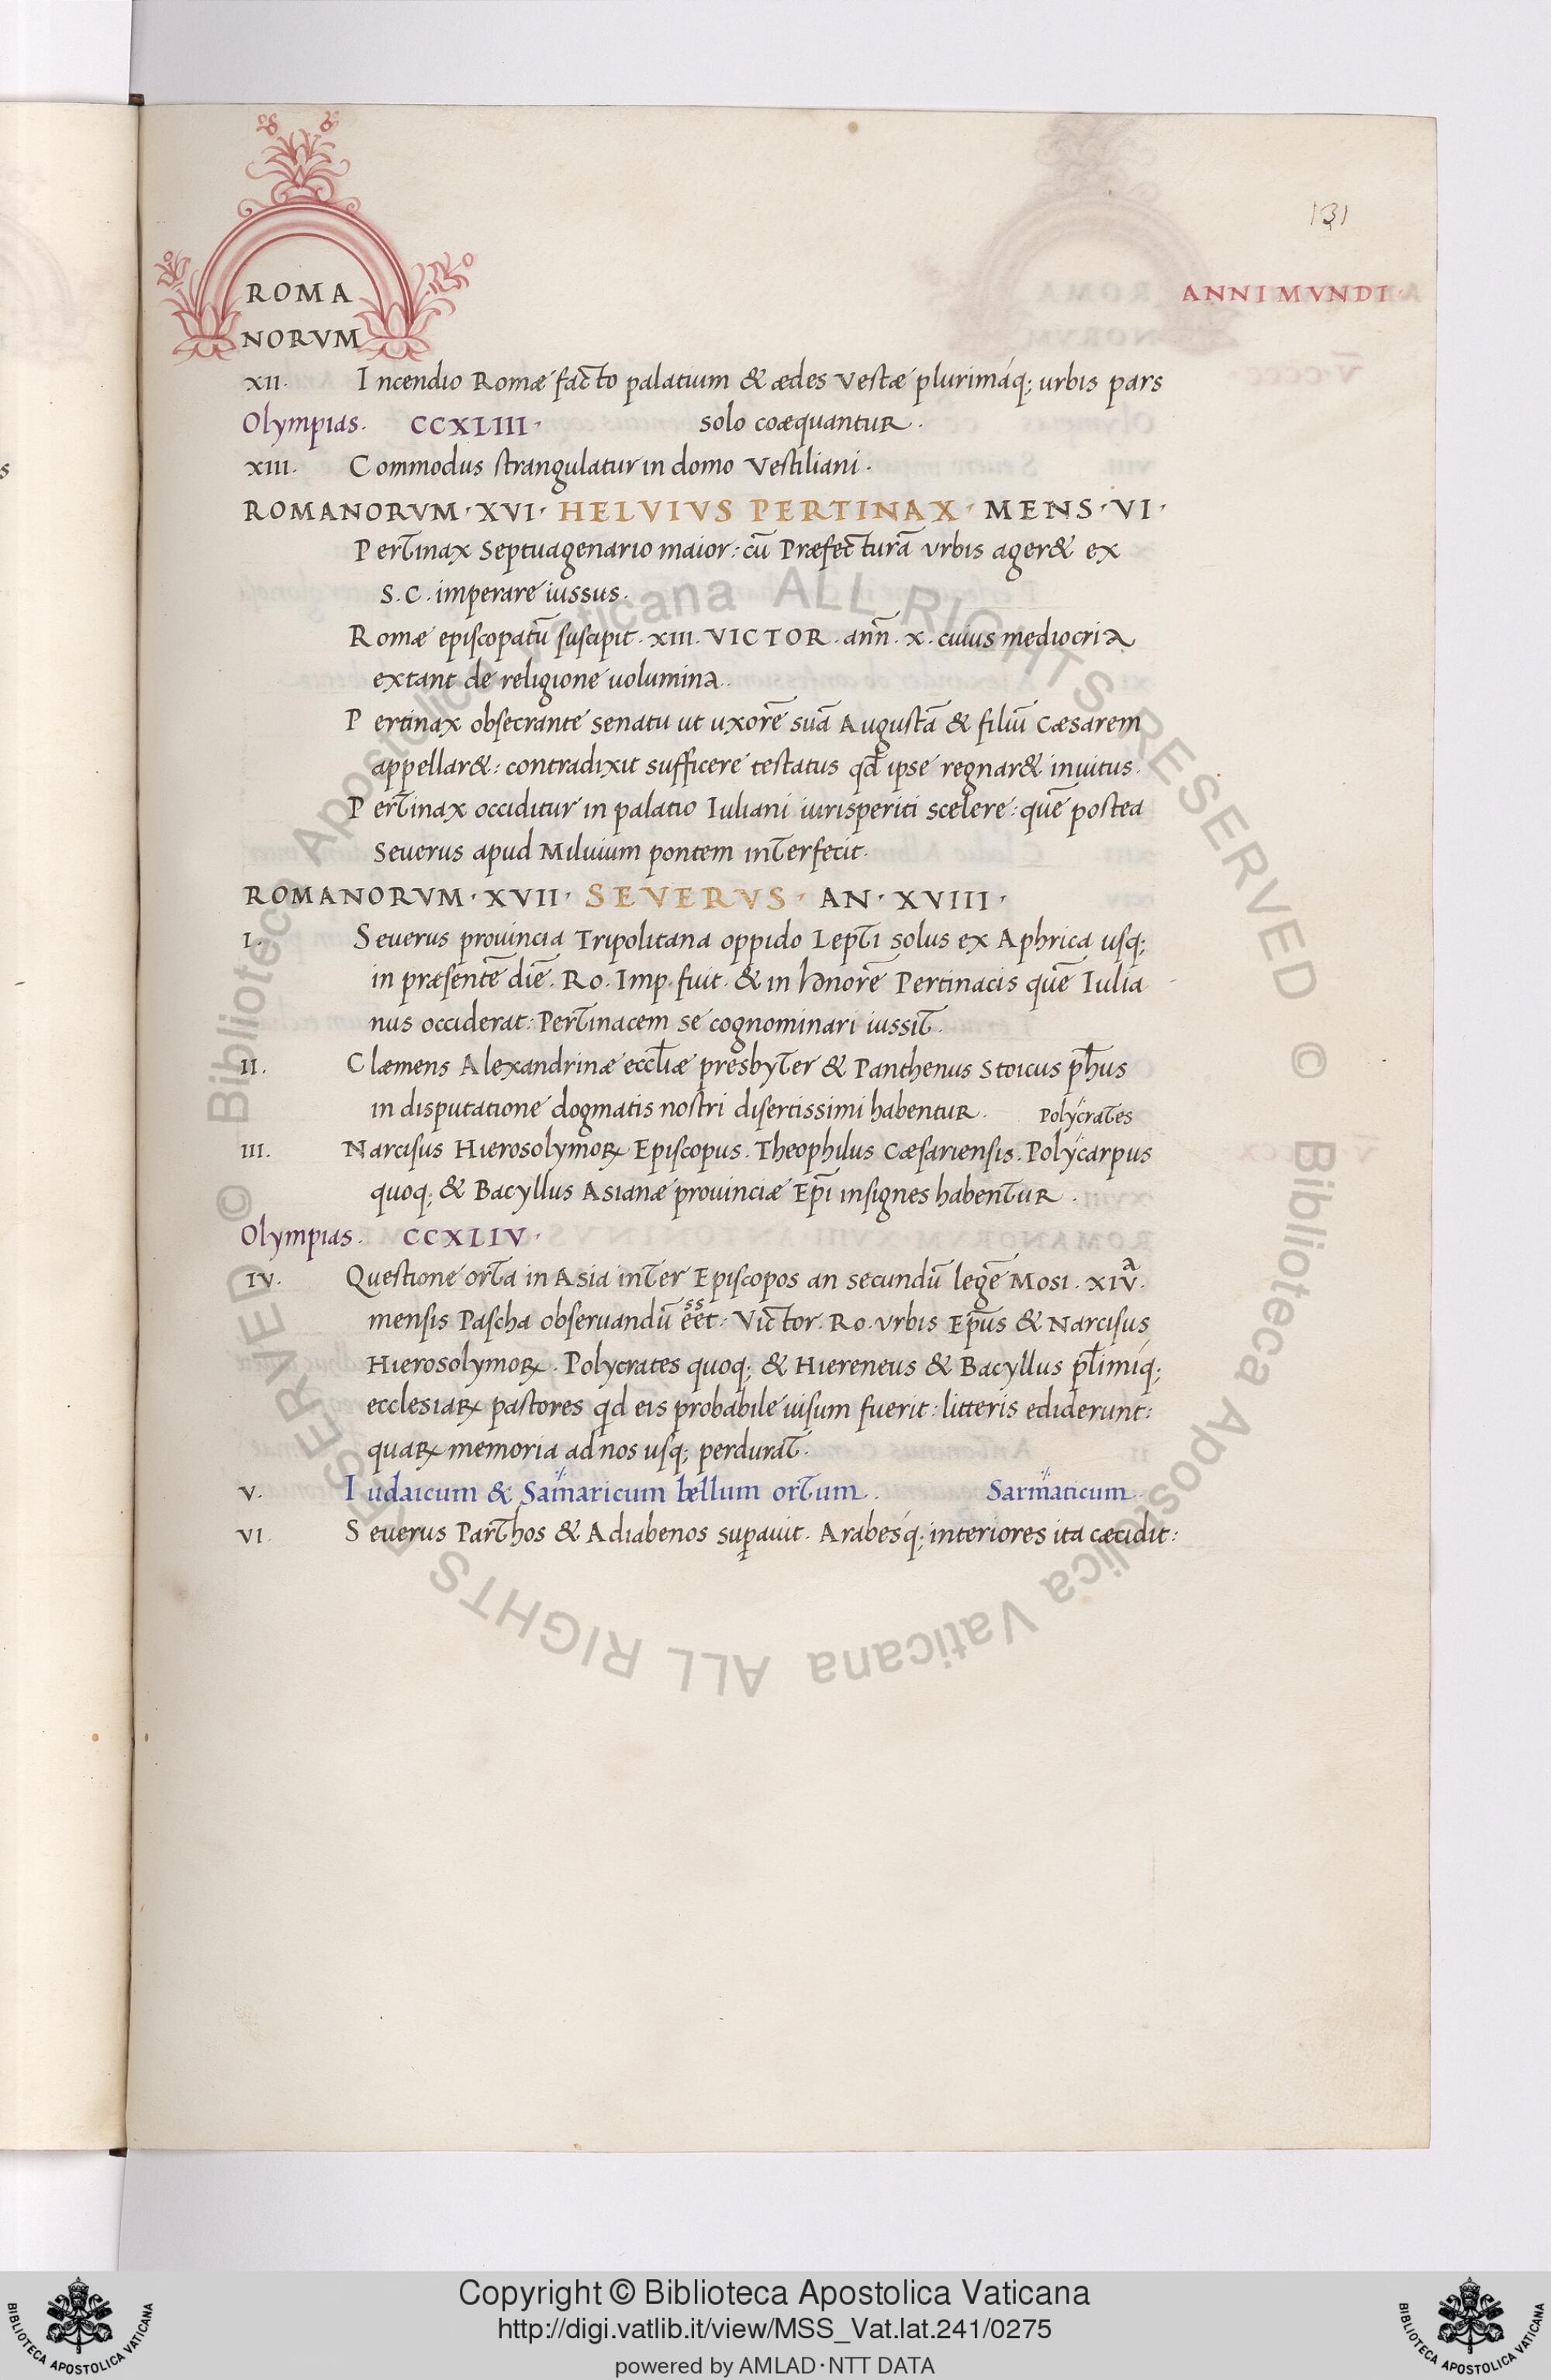 131
ROMA
NORVM
ANNI MVNDI
XII. Incendio Romæ facto palatium & ædes Vestæ plurimáq; urbis pars
Olympias. CCXLIII. solo coæquantur.
XIII. Commodus strangulatur in domo Vestiliani.
ROMANORVM·XVI· HELVIVS PERTINAX· MENS·VI·
Pertinax septuagenario maior: cū Præfecturā urbis ager& ex
S.C. imperare iussus.
Romæ episcopatū suscipit. XIII. VICTOR. anñ. X. cuius mediocria
extant de religione uolumina.
Pertinax obsecrante senatu ut uxorē suā Augustā & filiū Cæsarem
appellar&: contradixit sufficere testatus qđ ipse regnar& inuitus.
Pertinax occiditur in palatio Iuliani iurisperiti scelere: quē postea
Seuerus apud Miluium pontem interfecit.
ROMANORVM·XVII· SEVERVS· AN·XVIII·
I. Seuerus prouincia Tripolitana oppido Lepti solus ex Aphrica usq;
in præsentē diē. Ro. Imp. fuit. & in honorē Pertinacis quē Iulia
nus occiderat: Pertinacem se cognominari iussit.
II. Clæmens Alexandrinæ eccłiæ presbyter & Panthenus Stoicus pħus
in disputatione dogmatis nostri disertissimi habentur. Polycrates
III. Narcisus Hierosolymoꝝ Episcopus. Theophilus Cæsariensis. Polycarpus
quoq; & Bacyllus Asianæ prouinciæ Epī insignes habentur.
Olympias. CCXLIV.
IV. Questione orta in Asia inter Episcopos an secundū legē Mosi. XIVᵃ.
mensis Pascha obseruandū eēt: Victor. Ro. urbis Ep̄us & Narcisus
Hierosolymoꝝ. Polycrates quoq; & Hiereneus & Bacyllus płimiq;
ecclesiaꝝ pastores qd eis probabile uisum fuerit: litteris ediderunt:
quaꝝ memoria ad nos usq; perdurat.
V. Iudaicum & Samaricum bellum ortum. Sarmaticum
VI. Seuerus Parthos & Adiabenos suꝑauit. Arabesq́; interiores ita cæcidit:
Copyright © Biblioteca Apostolica Vaticana
http://digi.vatlib.it/view/MSS_Vat.lat.241/0275
powered by AMLAD·NTT DATA